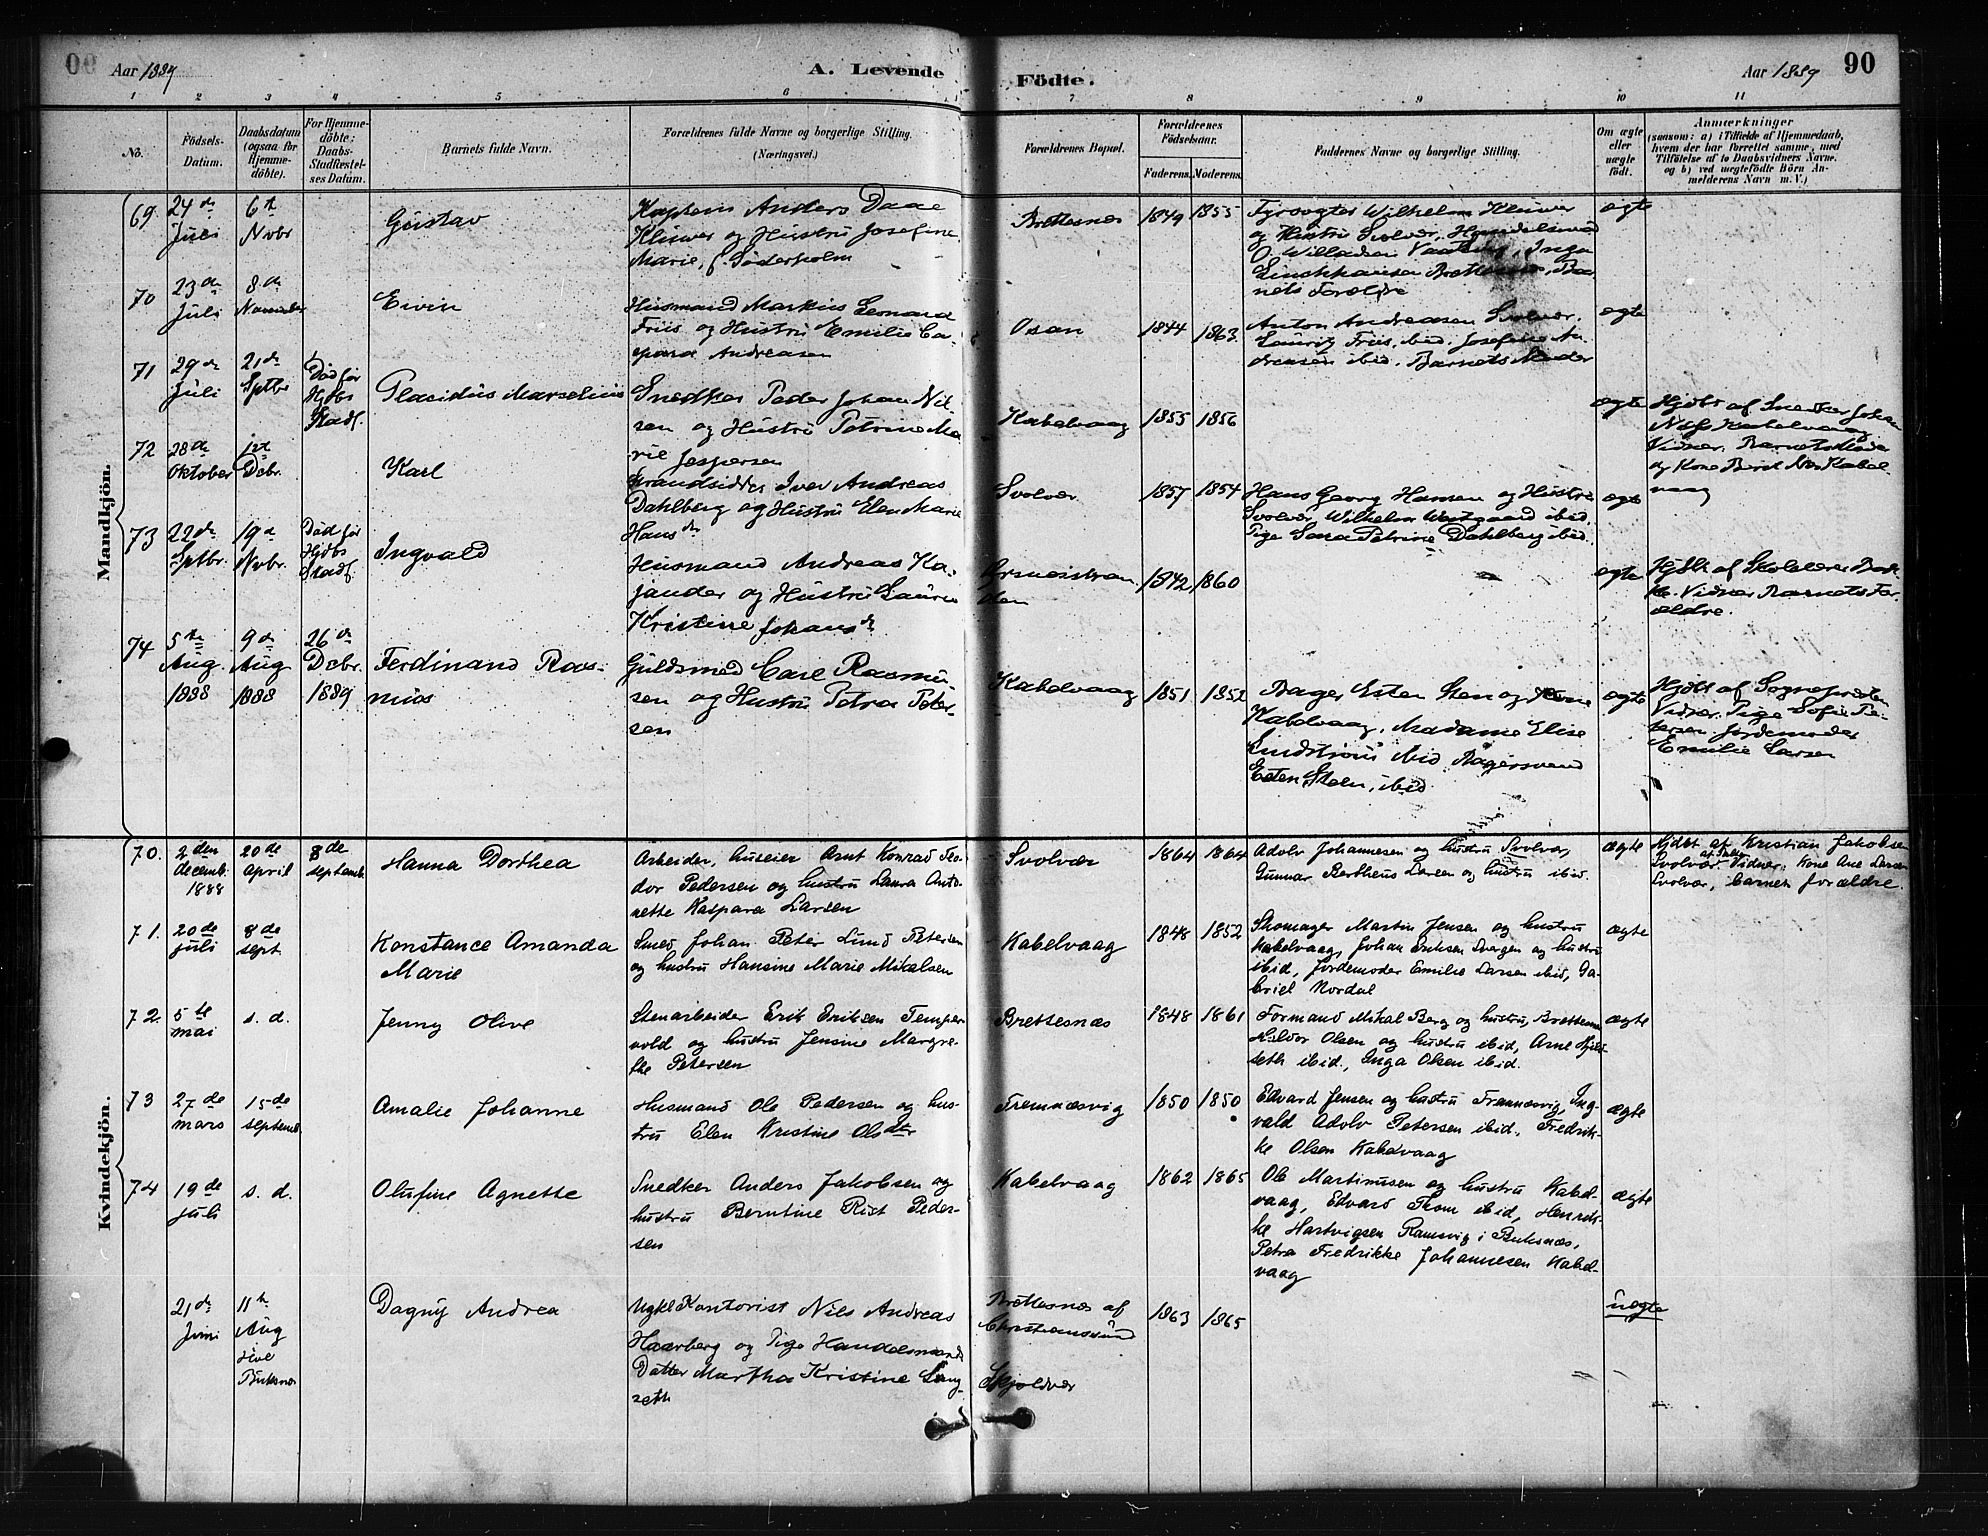 00 Aar 1889 A. Levende Födte. Aar 1889 90
1 2 3 4 5 6 7 8 9 10 11
No.
Födsels-
Datum.
Daabsdatum
(ogsaa for
Hjemme-
döbte).
For Hjemme-
döbte:
Daabs-
Stadfæstel-
ses Datum.
Barnets fulde Navn.
Forældrenes fulde Navne og borgerlige Stilling.
(Næringsvei.)
Forældrenes Bopæl.
Forældrenes
Födselsaar.
Faderens. Moderens.
Faddernes Navne og borgerlige Stilling.
Om ægte
eller
uægte
födt.
Anmærkninger
(saasom: a) i Tilfælde af Hjemmedaab,
hvem der har forrettet samme, med
Tilföielse af to Daabsvidners Navne,
og b) ved uægtefödte Börn An-
melderens Navn m. V.)
Mandkjön.
69. 24 de
Juli
6te
Nvbr
Gustav
Kaptein Anders Daae
Klüwer og Hustru Josefine
Marie, f. Söderholm
Brettesnæs
1849 1855
Fyrvogter Wilhelm Klüwer
og Hustru Svolvær, Handelsmand
O. Willadsen
Brettesnæs, Bar
nets Forældre
ægte
70 23 de
Juli
8 de
November
Eivin
Husmand Markus Leonard
Friis og Hustru Emilie Ca-
spara Andreasen
Osan
1844 1863
Anton Andreasen Svolvær.
Lauritz Friis, ibid. Josefine An-
dreasen ibid. Barnets Moder
ægte
71 29 de
Juli
21 de
Sptbr
Död før
Hjdbs
Stadf.
Placidus Marselius
Snedker Peder Johan Nil-
sen og Hustru Petrine Ma-
rie Jespersen
Kabelvaag
1855 1856
ægte
Hjdbt af Snedker Johan
Nils. Kabelvaag
Vidner. Barnets Moder
og Kone Berit Nils Kabel-
vaag
72 28 de
Oktober
1ste
Dcbr.
Karl
Strandsidder Iver Andreas
Dahlberg og Hustru Elen Marie
Hans dr
Svolvær
1857 1854
Hans Georg Hansen og Hustru
Svolvær Wilhelm Westgaard ibid.
Pige Petrine Dahlberg ibid.
ægte
73 22 de
Sptbr.
19 de
Nvbr.
Död før
Hjdbs
Stadf.
Ingvald
Husmand Andreas Ka-
jander og Hustru Laurie
Kristine Johans dr
1842 1860
ægte
Hjdbt af Skolelærer
Vidner Barnets For
ældre.
74 5te
Aug.
1888
9 de
Aug
1888
26 de
Dcbr.
1889
Ferdinand Ras-
mus
Guldsmed Carl Rasmu-
sen og Hustru Petra Peter-
sen
Kabelvaag
1851 1852
Bager Esten Sten og Kone
Kabelvaag, Madame Elise
Lindström ibid Bagersvend
Esten Steen, ibid.
ægte
Hjdbt af Sognepresten
Vidner. Pige Sofie Pe-
tersen Jordemoder
Emilie Larsen
Kvindekjön.
70. 2den
decemb.
1888
20de
april
8de
septemb.
Hanna Dorthea
Arbeider, huseier Arnt Konrad Teo-
dor Pedersen og hustru Laura Anto-
nette Kaspara Larsen
Svolvær
1864 1864
Adolv Johannesen og hustru Svolvær,
Gunnar Bertheus Larsen og hustru ibid.
ægte
Hjdbt af Kristian Jakobsen
Svolvær. Vidner, Kone Ane Larsen
Svolvær, barnets forældre.
71. 20de
juli
8de
sept.
Konstance Amanda
Marie
Smed Johan Peter Lund Petersen
og hustru Hansine Marie Mikalsen
Kabelvaag
1848 1852
Skomager Martin Jensen og hustru
Kabelvaag, Johan Eriksen og hustru
ibid, Jordemoder Emilie Larsen ibid, Ga-
briel Nordal
ægte
72. 5te
mai
s. d.
Jenny Olive
Stenarbeider Erik Eriksen Temper
vold og hustru Jensine Margre-
the Petersen
Brettesnæs
1848 1861
Formand Mikal Berg og hustru, Brettesnæs
Halvor Olsen og hustru ibid, Arne
seth ibid., Inga Olsen ibid.
ægte
73 27de
mars
15de
septemb.
Amalie Johanne
Husmand Ole Pedersen og hus-
tru Elen Kristine Olsdtr
Fremnæsvig
1850 1850
Edvard Jensen og hustru Fremnæsvig, Ing-
vald Adolv Petersen ibid., Fredrik-
ke Olsen Kabelvaag
ægte
74 19de
juli
s. d.
Olufine Agnette
Snedker Anders Jakobsen og
hustru Berntine Rist Peder-
sen
Kabelvaag
1862 1865
Ole Martinusen og hustru Kabel-
vaag, Edvard Thom ibid, Henrik-
ke Hartvigsen Ramsvig i Buksnæs,
Petra Fredrikke Johannesen Kabel-
vaag
ægte
21 de
Juni
11te
Aug
Hol
Buksnæs
Dagny Andrea
Ugkl Kontorist Nils Andreas
Haarberg og Pige Handelsmands
Datter Martha Kristine Lang-
seth
Brettesnæs af
Christianssund
Skjoldvær
1863 1865
uægte